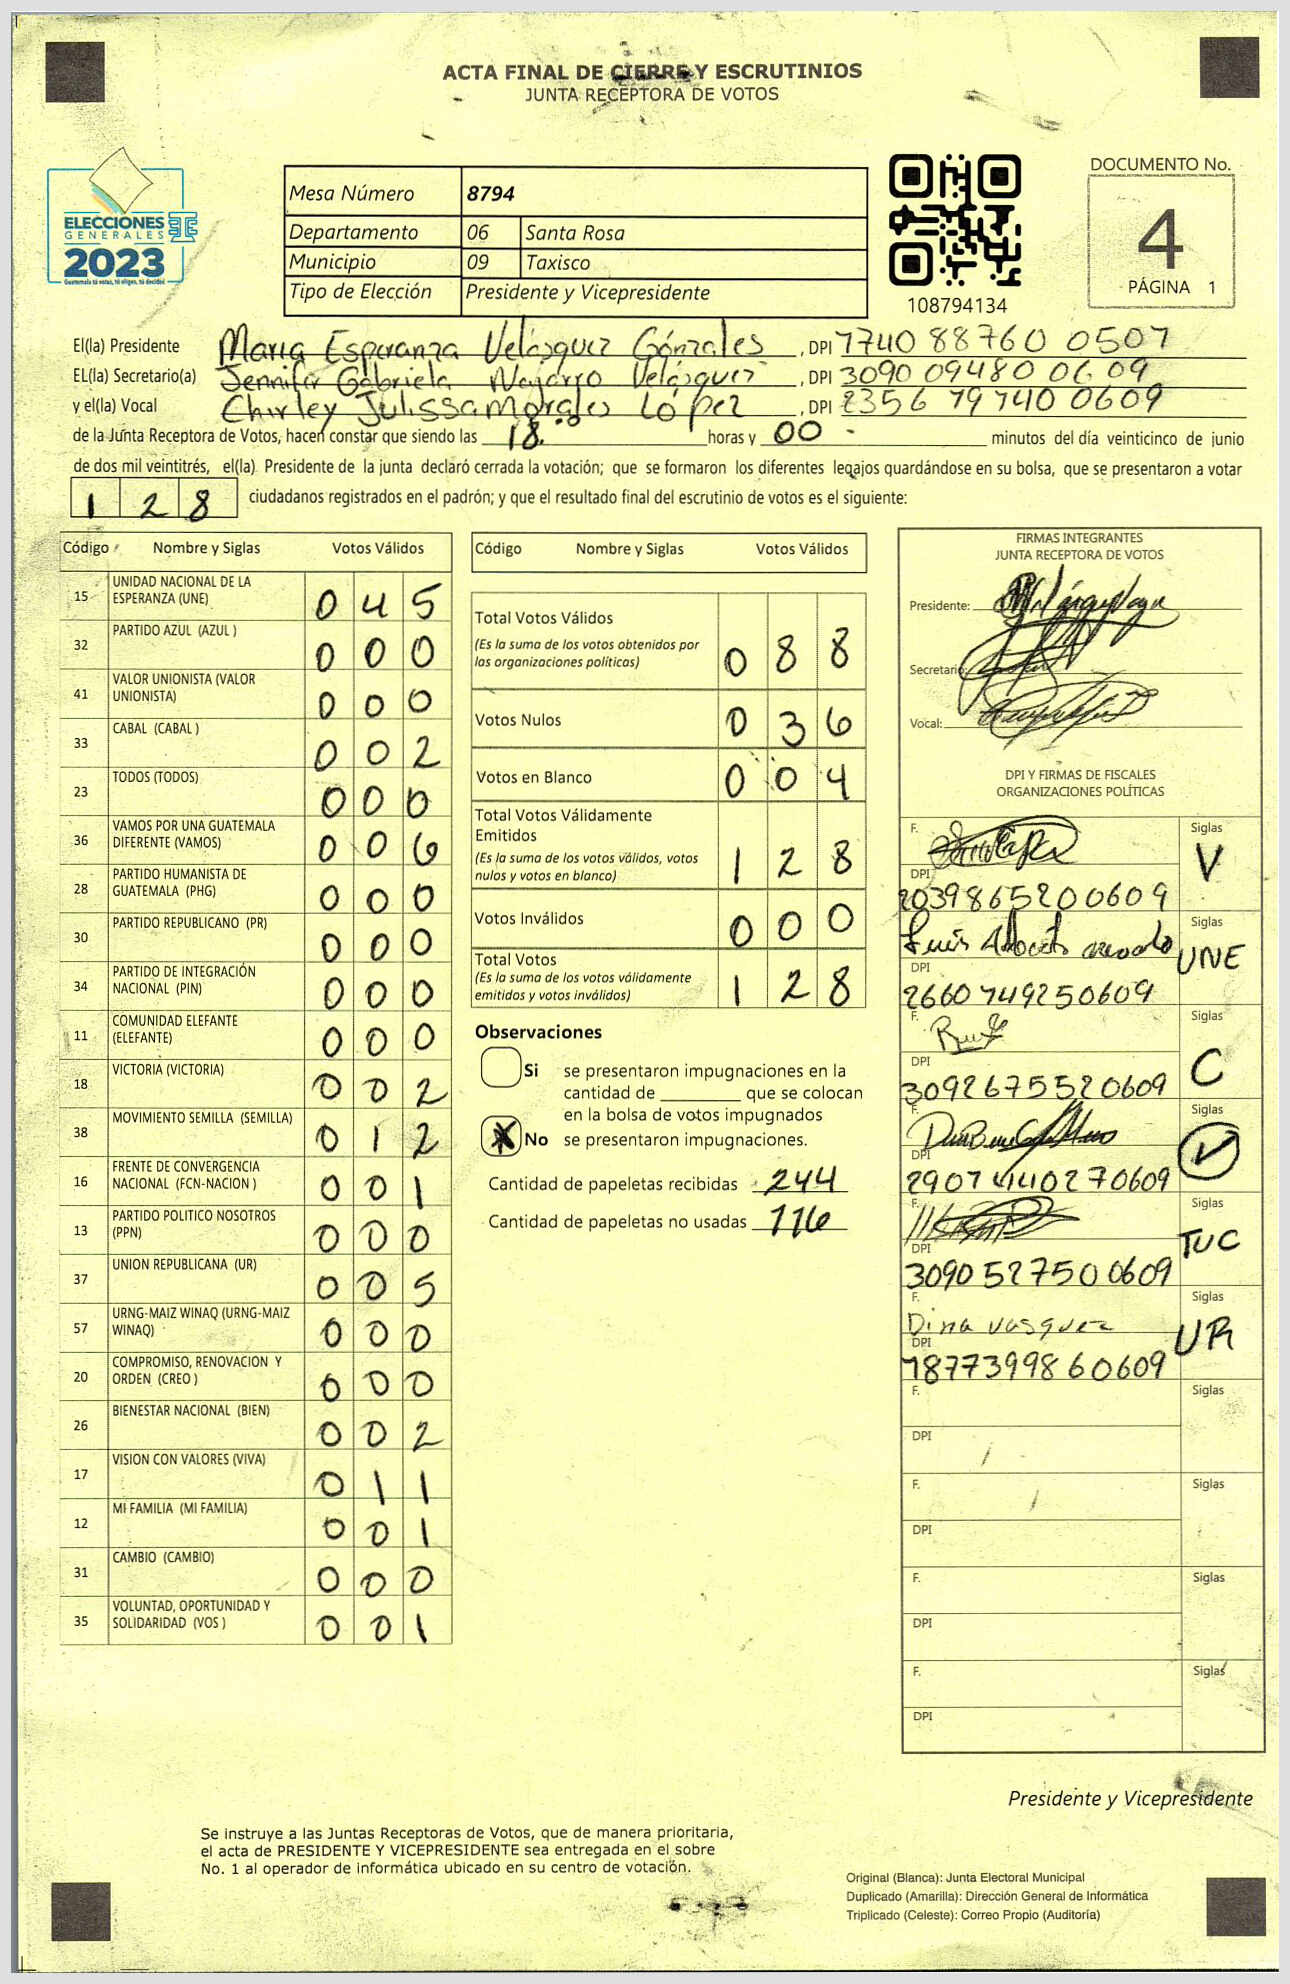 ACTA FINAL DE CIERRE Y ESCRUTINIOS
JUNTA RECEPTORA DE VOTOS
ELECCIONES
GENERALES
2023
Guatemala tú votas, tú eliges, tú decides
Mesa Número 8794
Departamento 06 Santa Rosa
Municipio 09 Taxisco
Tipo de Elección Presidente y Vicepresidente
108794134
DOCUMENTO No.
4
PÁGINA 1
El(la) Presidente Maria Esperanza Velásquez Gónzales, DPI 7740 88760 0507
EL(la) Secretario(a) Jennifer Gabriela Najarro Velásquez, DPI 3090 09480 0609
y el(la) Vocal Chirley Julissa Morales López, DPI 2356 79740 0609
de la Junta Receptora de Votos, hacen constar que siendo las 18:00 horas y 00 minutos del día veinticinco de junio
de dos mil veintitrés, el(la) Presidente de la junta declaró cerrada la votación; que se formaron los diferentes legajos guardándose en su bolsa, que se presentaron a votar
128 ciudadanos registrados en el padrón; y que el resultado final del escrutinio de votos es el siguiente:
Código Nombre y Siglas Votos Válidos
15 UNIDAD NACIONAL DE LA ESPERANZA (UNE) 045
32 PARTIDO AZUL (AZUL ) 000
41 VALOR UNIONISTA (VALOR UNIONISTA) 000
33 CABAL (CABAL ) 002
23 TODOS (TODOS) 000
36 VAMOS POR UNA GUATEMALA DIFERENTE (VAMOS) 006
28 PARTIDO HUMANISTA DE GUATEMALA (PHG) 000
30 PARTIDO REPUBLICANO (PR) 000
34 PARTIDO DE INTEGRACIÓN NACIONAL (PIN) 000
11 COMUNIDAD ELEFANTE (ELEFANTE) 000
18 VICTORIA (VICTORIA) 002
38 MOVIMIENTO SEMILLA (SEMILLA) 012
16 FRENTE DE CONVERGENCIA NACIONAL (FCN-NACION ) 001
13 PARTIDO POLITICO NOSOTROS (PPN) 000
37 UNION REPUBLICANA (UR) 005
57 URNG-MAIZ WINAQ (URNG-MAIZ WINAQ) 000
20 COMPROMISO, RENOVACION Y ORDEN (CREO ) 000
26 BIENESTAR NACIONAL (BIEN) 002
17 VISION CON VALORES (VIVA) 011
12 MI FAMILIA (MI FAMILIA) 001
31 CAMBIO (CAMBIO) 000
35 VOLUNTAD, OPORTUNIDAD Y SOLIDARIDAD (VOS ) 001
Código Nombre y Siglas Votos Válidos
Total Votos Válidos 088
(Es la suma de los votos obtenidos por
las organizaciones políticas)
Votos Nulos 036
Votos en Blanco 004
Total Votos Válidamente
Emitidos 128
(Es la suma de los votos válidos, votos
nulos y votos en blanco)
Votos Inválidos 000
Total Votos 128
(Es la suma de los votos válidamente
emitidos y votos inválidos)
Observaciones
Si se presentaron impugnaciones en la
cantidad de ________ que se colocan
en la bolsa de votos impugnados
X No se presentaron impugnaciones.
Cantidad de papeletas recibidas 244
Cantidad de papeletas no usadas 116
FIRMAS INTEGRANTES
JUNTA RECEPTORA DE VOTOS
Presidente:
Secretario:
Vocal:
DPI Y FIRMAS DE FISCALES
ORGANIZACIONES POLÍTICAS
F. Siglas V
DPI 2039865200609
Luis Alberto Siglas UNE
DPI 2660749250609
F. Siglas C
DPI 3092675520609
F. Siglas V
DPI 2907441027 0609
F. Siglas TUC
DPI 3090527500609
F. Dina Vasquez Siglas UR
DPI 1877399860609
F. Siglas
DPI
F. Siglas
DPI
F. Siglas
DPI
F. Siglas
DPI
Presidente y Vicepresidente
Se instruye a las Juntas Receptoras de Votos, que de manera prioritaria,
el acta de PRESIDENTE Y VICEPRESIDENTE sea entregada en el sobre
No. 1 al operador de informática ubicado en su centro de votación.
Original (Blanca): Junta Electoral Municipal
Duplicado (Amarilla): Dirección General de Informática
Triplicado (Celeste): Correo Propio (Auditoría)